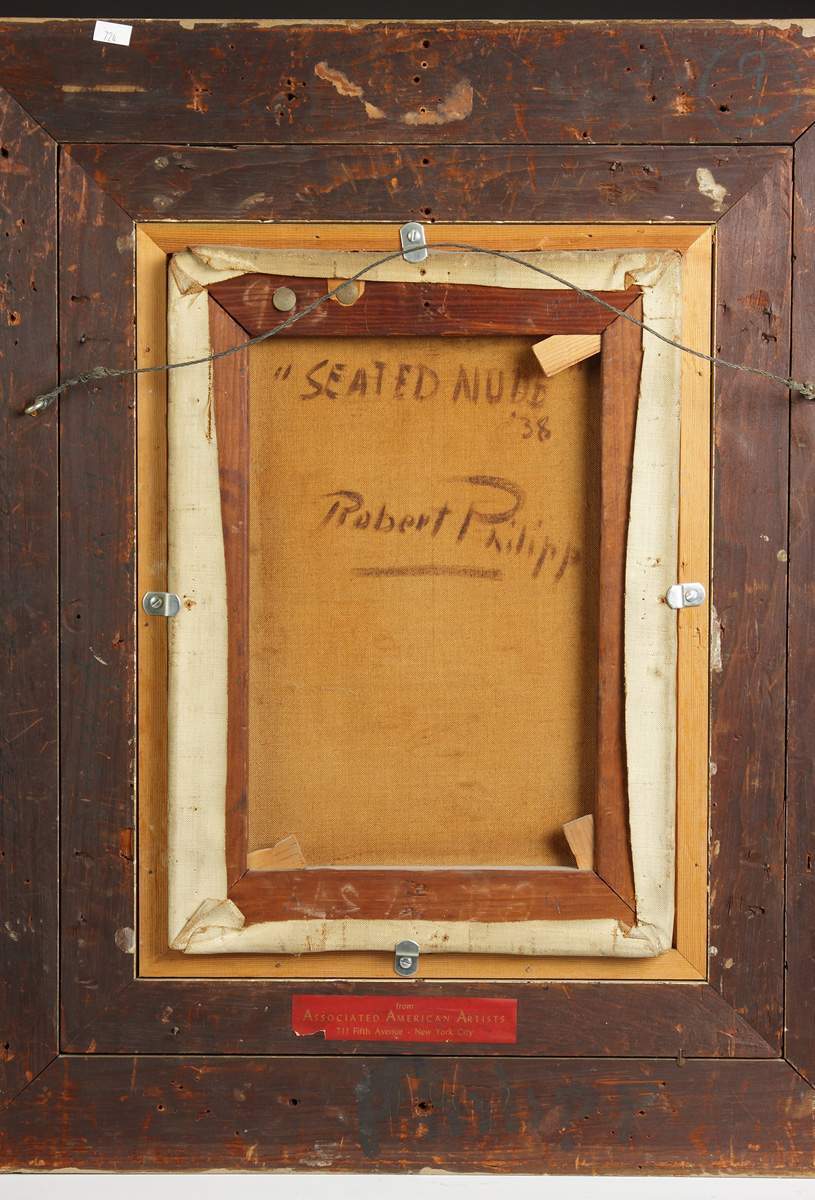 726
2
" SEATED NUDE "
'38
Robert Philipp
from
ASSOCIATED AMERICAN ARTISTS
711 Fifth Avenue - New York City